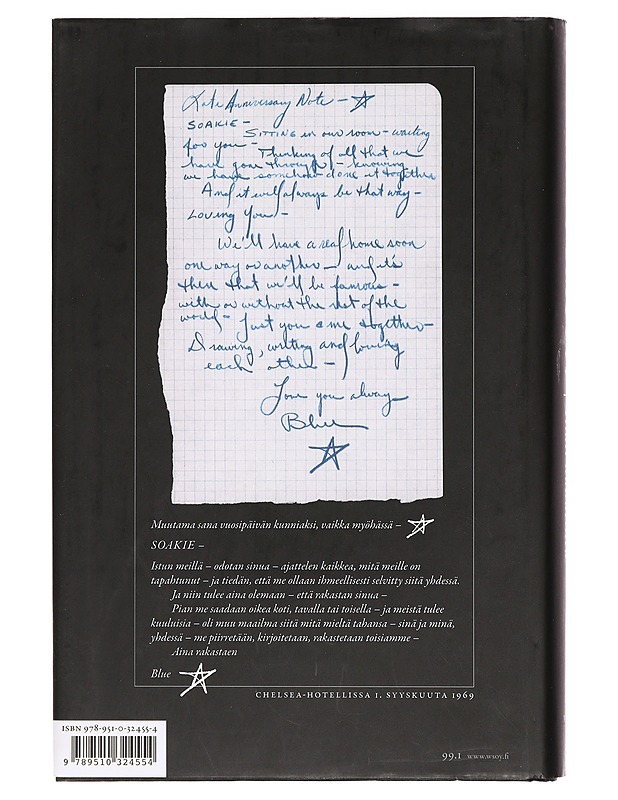 Late Anniversary Note –
SOAKIE –
Sitting in our room – waiting
for you –
Thinking of all that we
have gone through – knowing
we have somehow done it together
And it will always be that way –
Loving you –
We'll have a real home soon
one way or another – and it's
there that we'll be famous –
with or without the rest of the
world – Just you & me together –
Drawing, writing and loving
each other –
Love you always
Blue
Muutama sana vuosipäivän kunniaksi, vaikka myöhässä –
SOAKIE –
Istun meillä – odotan sinua – ajattelen kaikkea, mitä meille on
tapahtunut – ja tiedän, että me ollaan ihmeellisesti selvitty siitä yhdessä.
Ja niin tulee aina olemaan – että rakastan sinua –
Pian me saadaan oikea koti, tavalla tai toisella – ja meistä tulee
kuuluisia – oli muu maailma siitä mitä mieltä tahansa – sinä ja minä,
yhdessä – me piirretään, kirjoitetaan, rakastetaan toisiamme –
Aina rakastaen
Blue
CHELSEA-HOTELLISSA 1. SYYSKUUTA 1969
ISBN 978-951-0-32455-4
9 789510 324554
99.1 www.wsoy.fi